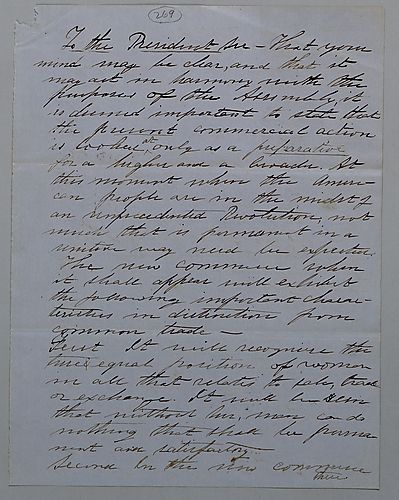 269
To the President Sir – That your
mind may be clear, and that it
may act in harmony with the
purposes of the Assembly, it
is deemed important to state that
the present commercial action
is looked at only as a preparative
for a higher and a broader. At
this moment when the Ameri-
can people are in the midst of
an unprecedented Revolution, not
much that is permanent in a
unitive way need be expected.
The new commerce when
it shall appear will exhibit
the following important charac-
teristics in distinction from
common trade –
First It will recognise the
true equal position of woman
in all that relates to sale, trade
or exchange. It will be seen
that without her, man can do
nothing that shall be perma
nent and satisfactory.
Second In the new commerce